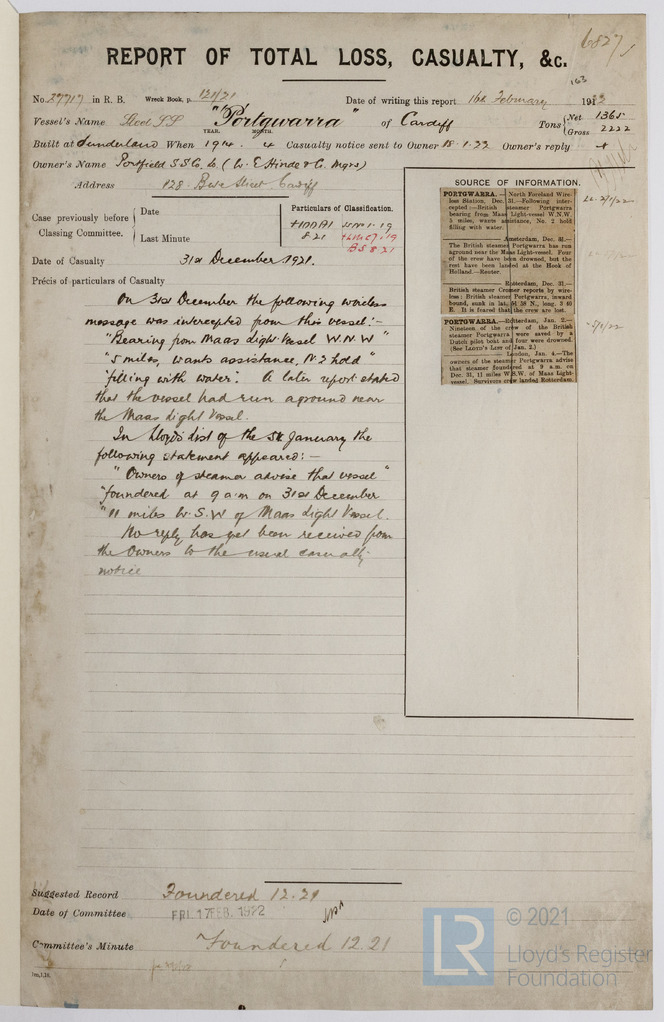 6827
REPORT OF TOTAL LOSS, CASUALTY, &c.
No. 37717 in R. B. Wreck Book, p. 121/21 Date of writing this report 16th February 1922
163
Vessel's Name Steel SS "Portgwarra" of Cardiff Tons { Net 1365 Gross 2222
YEAR. MONTH.
Built at Sunderland When 1914 4 Casualty notice sent to Owner 18.1.22 Owner's reply
Owner's Name Portfield S.S. Co. Ld. (W. E. Hinde & Co. Mgrs)
Address Bute Street Cardiff
Case previously before Classing Committee. { Date
Last Minute
Particulars of Classification.
+100A1
8.21
+LMC 7.19
BS 8.21
Date of Casualty 31st December 1921.
Précis of particulars of Casualty
On 31st December the following wireless
message was intercepted from this vessel:-
"Bearing from Maas Light Vessel W.N.W"
"5 miles, wants assistance, No 2 hold"
"filling with water". A later report stated
that the vessel had run aground near
the Maas Light Vessel.
In Lloyd's List of the 5th January the
following statement appeared:-
"Owners of steamer advise that vessel"
"foundered at 9 a.m on 31st December
"11 miles W.S.W of Maas Light Vessel.
No reply has yet been received from
the Owners to the usual casualty
notice
SOURCE OF INFORMATION.
PORTGWARRA.—North Foreland Wire-
less Station, Dec. 31.—Following inter-
cepted:—British steamer Portgwarra
bearing from Maas Light-vessel W.N.W.
5 miles, wants assistance, No. 2 hold
filling with water.
Amsterdam, Dec. 31.—
The British steamer Portgwarra has run
aground near the Maas Light-vessel. Four
of the crew have been drowned, but the
rest have been landed at the Hook of
Holland.—Reuter.
Rotterdam, Dec. 31.—
British steamer Cromer reports by wire-
less: British steamer Portgwarra, inward
bound, sunk in lat. 51 58 N., long. 3 40
E. It is feared that the crew are lost.
PORTGWARRA.—Rotterdam, Jan. 2.—
Nineteen of the crew of the British
steamer Portgwarra were saved by a
Dutch pilot boat and four were drowned.
(See LLOYD'S LIST of Jan. 2.)
London, Jan. 4.—The
owners of the steamer Portgwarra advise
that steamer foundered at 9 a.m. on
Dec. 31, 11 miles W.S.W. of Maas Light-
vessel. Survivors crew landed Rotterdam.
5/1/22
Suggested Record Foundered 12.21
Date of Committee FRI. 17 FEB. 1922
Committee's Minute Foundered 12.21
LR
© 2021
Lloyd's Register
Foundation